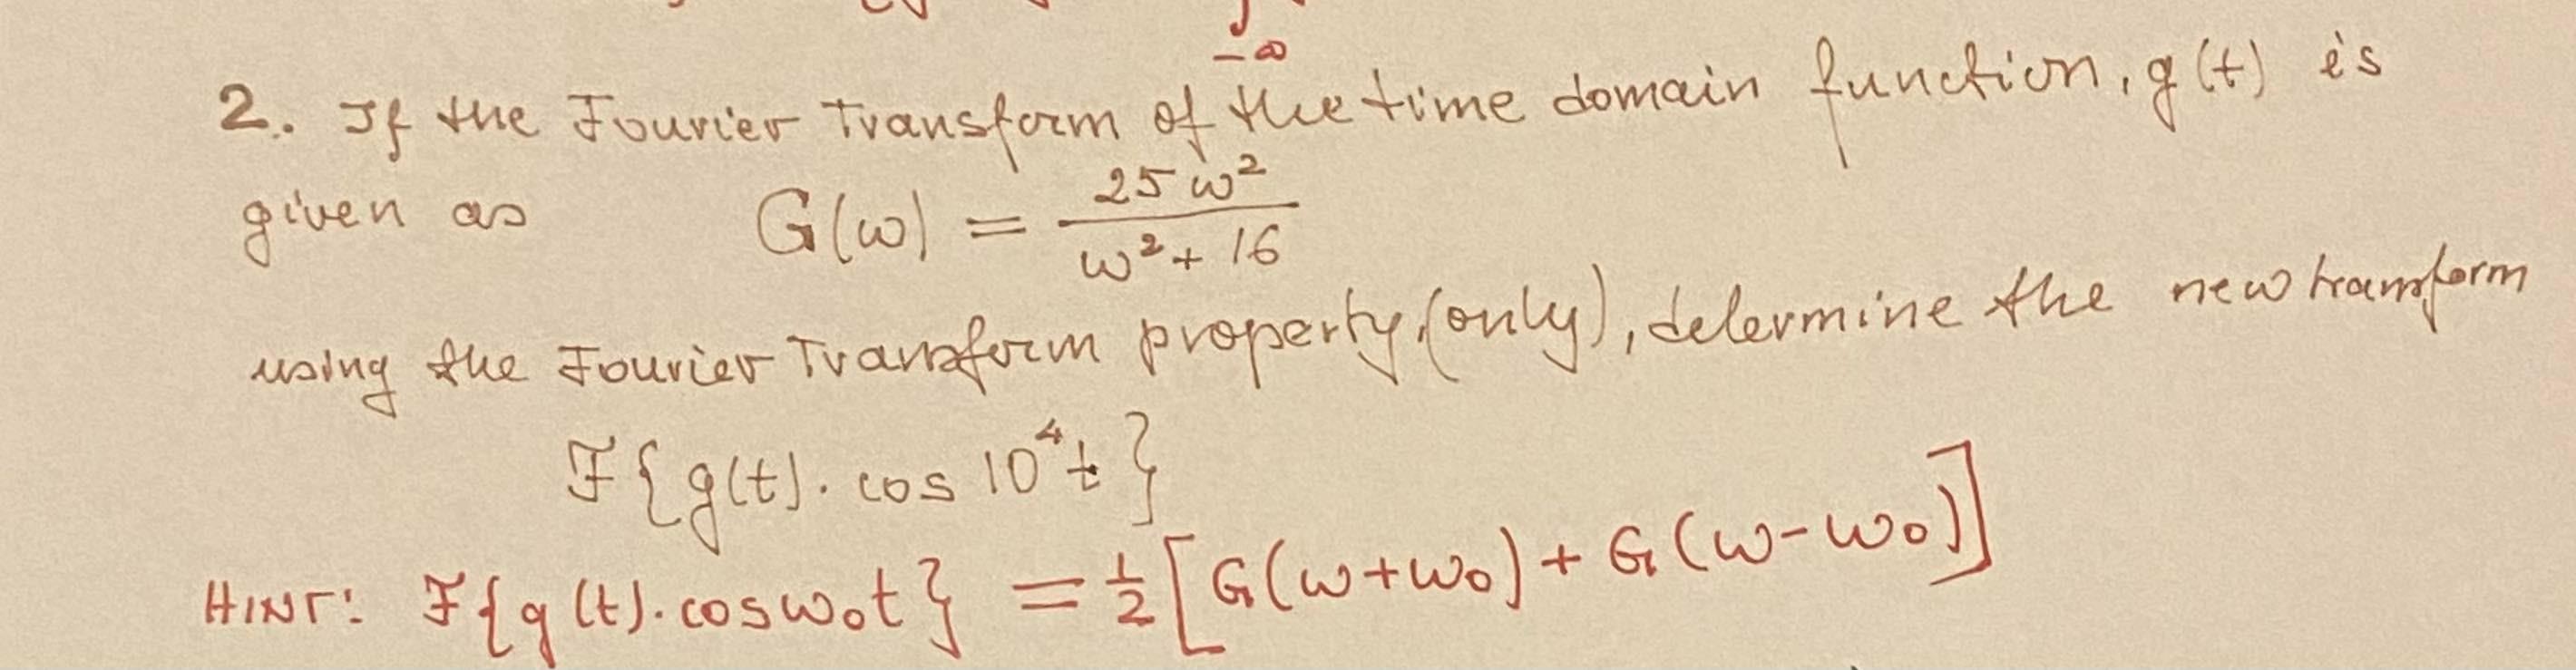 -∞
2. If the Fourier Transform of the time domain function, g(t) is
given as G(ω) = 25ω² / ω² + 16
using the Fourier Transform property, (only), determine the new transform
F{g(t). cos 10⁴t}
HINT: F{g(t). cos ω₀t} = 1/2 [G(ω+ω₀) + G(ω-ω₀)]